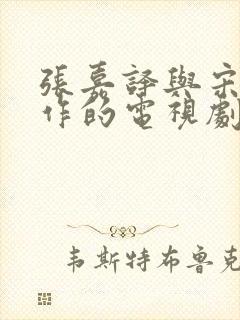 張嘉譯與宋
作的電視劇
韦斯特布鲁克